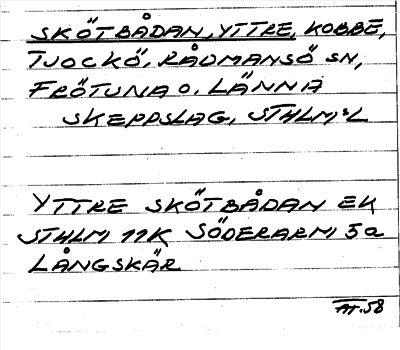 SKÖTBÅDAN, YTTRE, KOBBE,
TJOCKÖ, RÅDMANSÖ SN,
FRÖTUNA O. LÄNNA
SKEPPSLAG, STHLM:S L
YTTRE SKÖTBÅDAN EK
STHLM 11K SÖDERARM 5a
LÅNGSKÄR
AT. 58